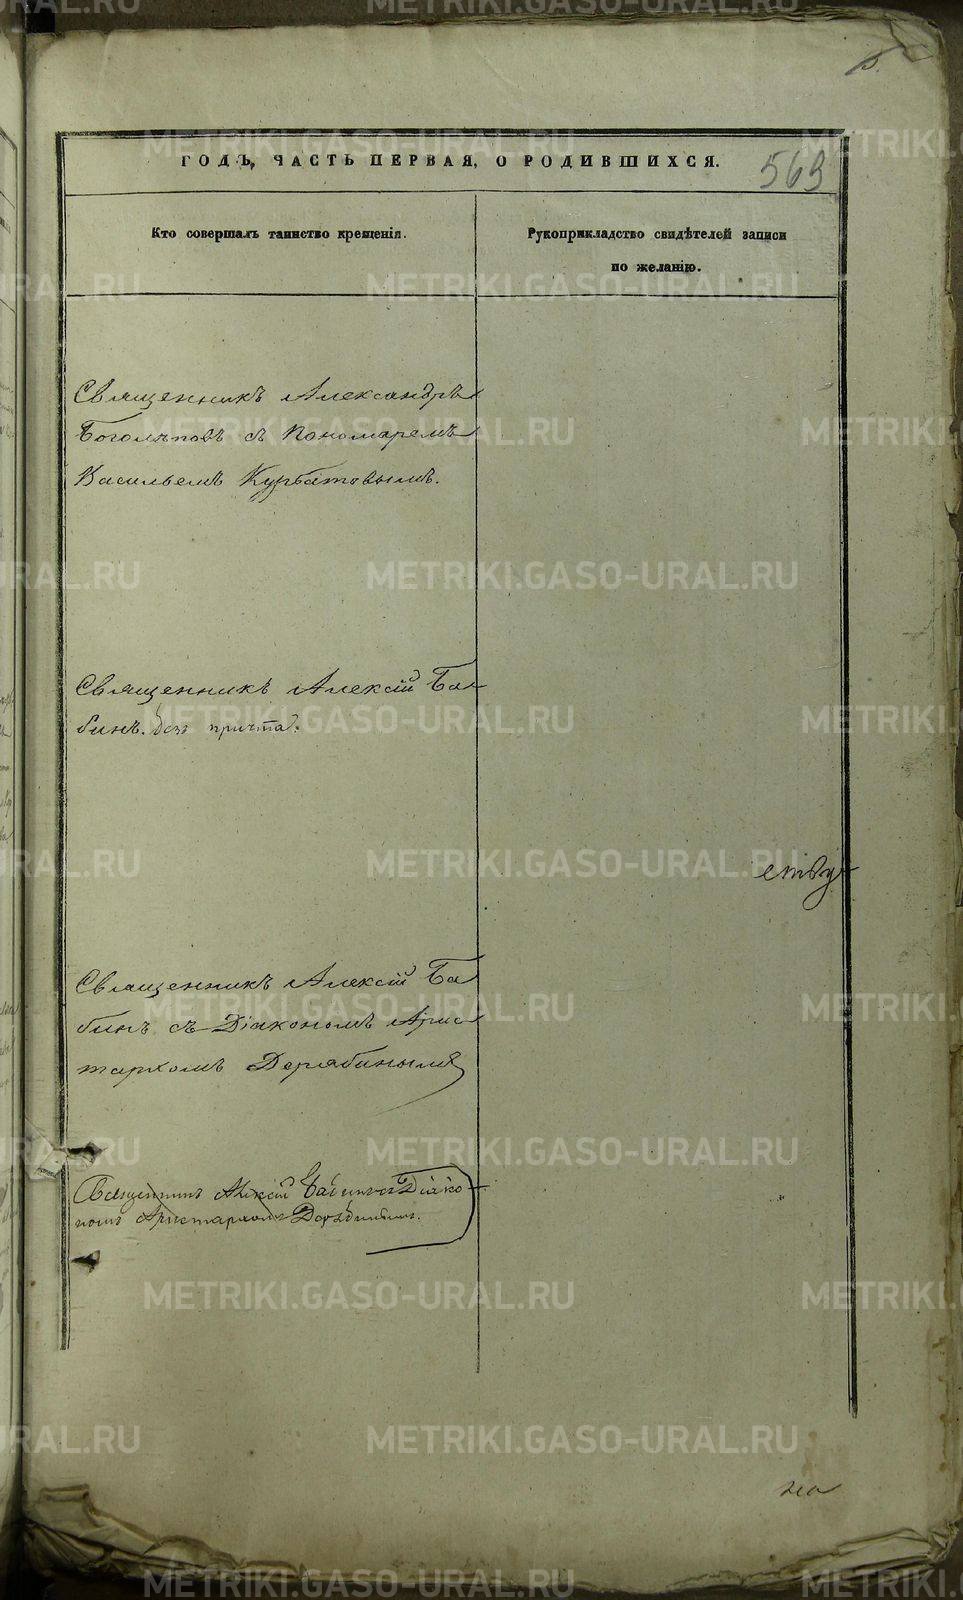 ГОДЪ, ЧАСТЬ ПЕРВАЯ, О РОДИВШИХСЯ.
569
Кто совершалъ таинство крещенія.
Рукоприкладство свидѣтелей записи
по желанію.
Священникъ Александръ
Боголѣповъ съ Пономаремъ
Васильемъ Курбатовымъ.
Священникъ Алексій Ба-
бинъ. безъ причта.
Священникъ Алексій Ба
бинъ съ Діакономъ Арис
тархомъ Дерябинымъ
Священникъ Алексій Бабинъ съ Діако-
номъ Аристархомъ Дерябинымъ.
METRIKI.GASO-URAL.RU